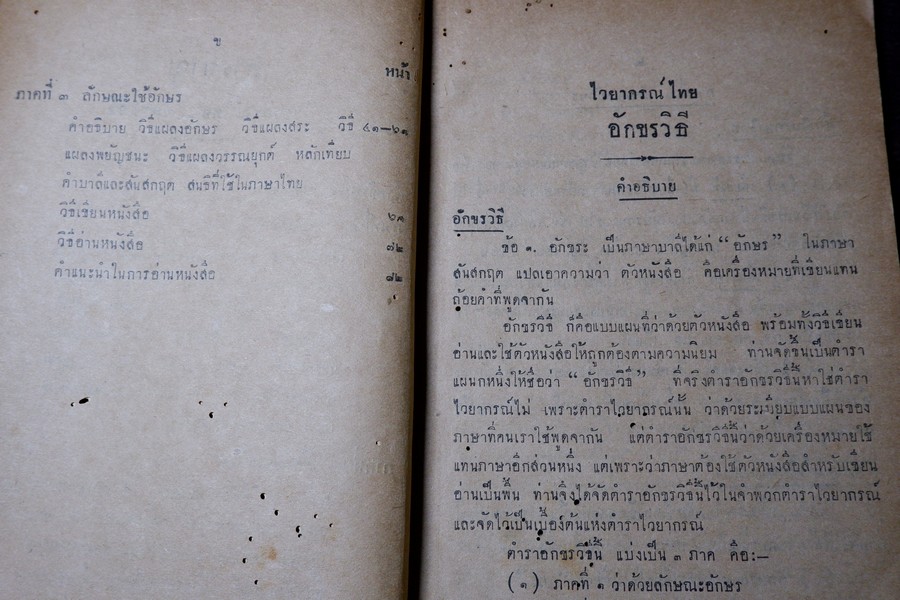 ข
หน้า
ภาคที่ ๓ ลักษณะใช้อักษร
คำอธิบาย วิธีแผลงอักษร วิธีแผลงสระ วิธี ๔๑—๖๑
แผลงพยัญชนะ วิธีแผลงวรรณยุกต์ หลักเทียบ
คำบาลีและสันสกฤต สนธิที่ใช้ในภาษาไทย
วิธีเขียนหนังสือ ๖๑
วิธีอ่านหนังสือ ๗๒
คำแนะนำในการอ่านหนังสือ ๘๒
ไวยากรณ์ไทย
อักขรวิธี
คำอธิบาย
อักขรวิธี
ข้อ ๑. อักขระ เป็นภาษาบาลีได้แก่ “อักษร” ในภาษา
สันสกฤต แปลเอาความว่า ตัวหนังสือ คือเครื่องหมายที่เขียนแทน
ถ้อยคำที่พูดจากัน
อักขรวิธี ก็คือแบบแผนที่ว่าด้วยตัวหนังสือ พร้อมทั้งวิธีเขียน
อ่านและใช้ตัวหนังสือให้ถูกต้องตามความนิยม ท่านจัดขึ้นเป็นตำรา
แผนกหนึ่งให้ชื่อว่า “อักขรวิธี” ที่จริงตำราอักขรวิธีนี้หาใช่ตำรา
ไวยากรณ์ไม่ เพราะตำราไวยากรณ์นั้น ว่าด้วยระเบียบแบบแผนของ
ภาษาที่คนเราใช้พูดจากัน แต่ตำราอักขรวิธีนี้ว่าด้วยเครื่องหมายใช้
แทนภาษาอีกส่วนหนึ่ง แต่เพราะว่าภาษาต้องใช้ตัวหนังสือสำหรับเขียน
อ่านเป็นพื้น ท่านจึงได้จัดตำราอักขรวิธีนี้ไว้ในจำพวกตำราไวยากรณ์
และจัดไว้เป็นเบื้องต้นแห่งตำราไวยากรณ์
ตำราอักขรวิธีนี้ แบ่งเป็น ๓ ภาค คือ:—
(๑) ภาคที่ ๑ ว่าด้วยลักษณะอักษร